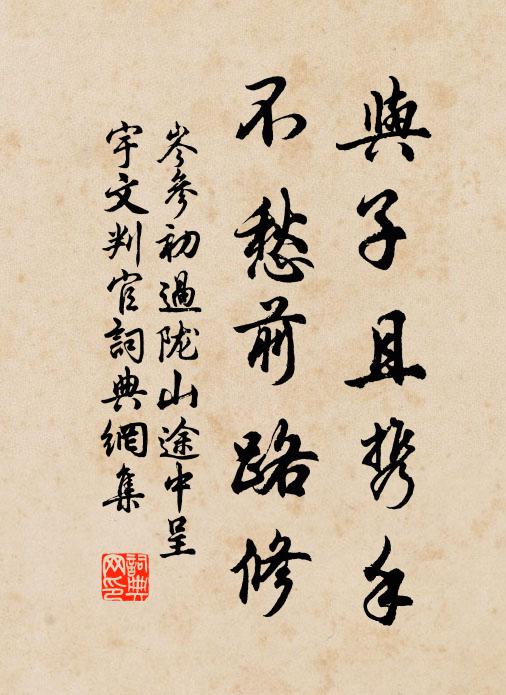 與子且携手
不愁前路修
岑參初過陇山途中呈
宇文判官詞典網集
詞典
网印